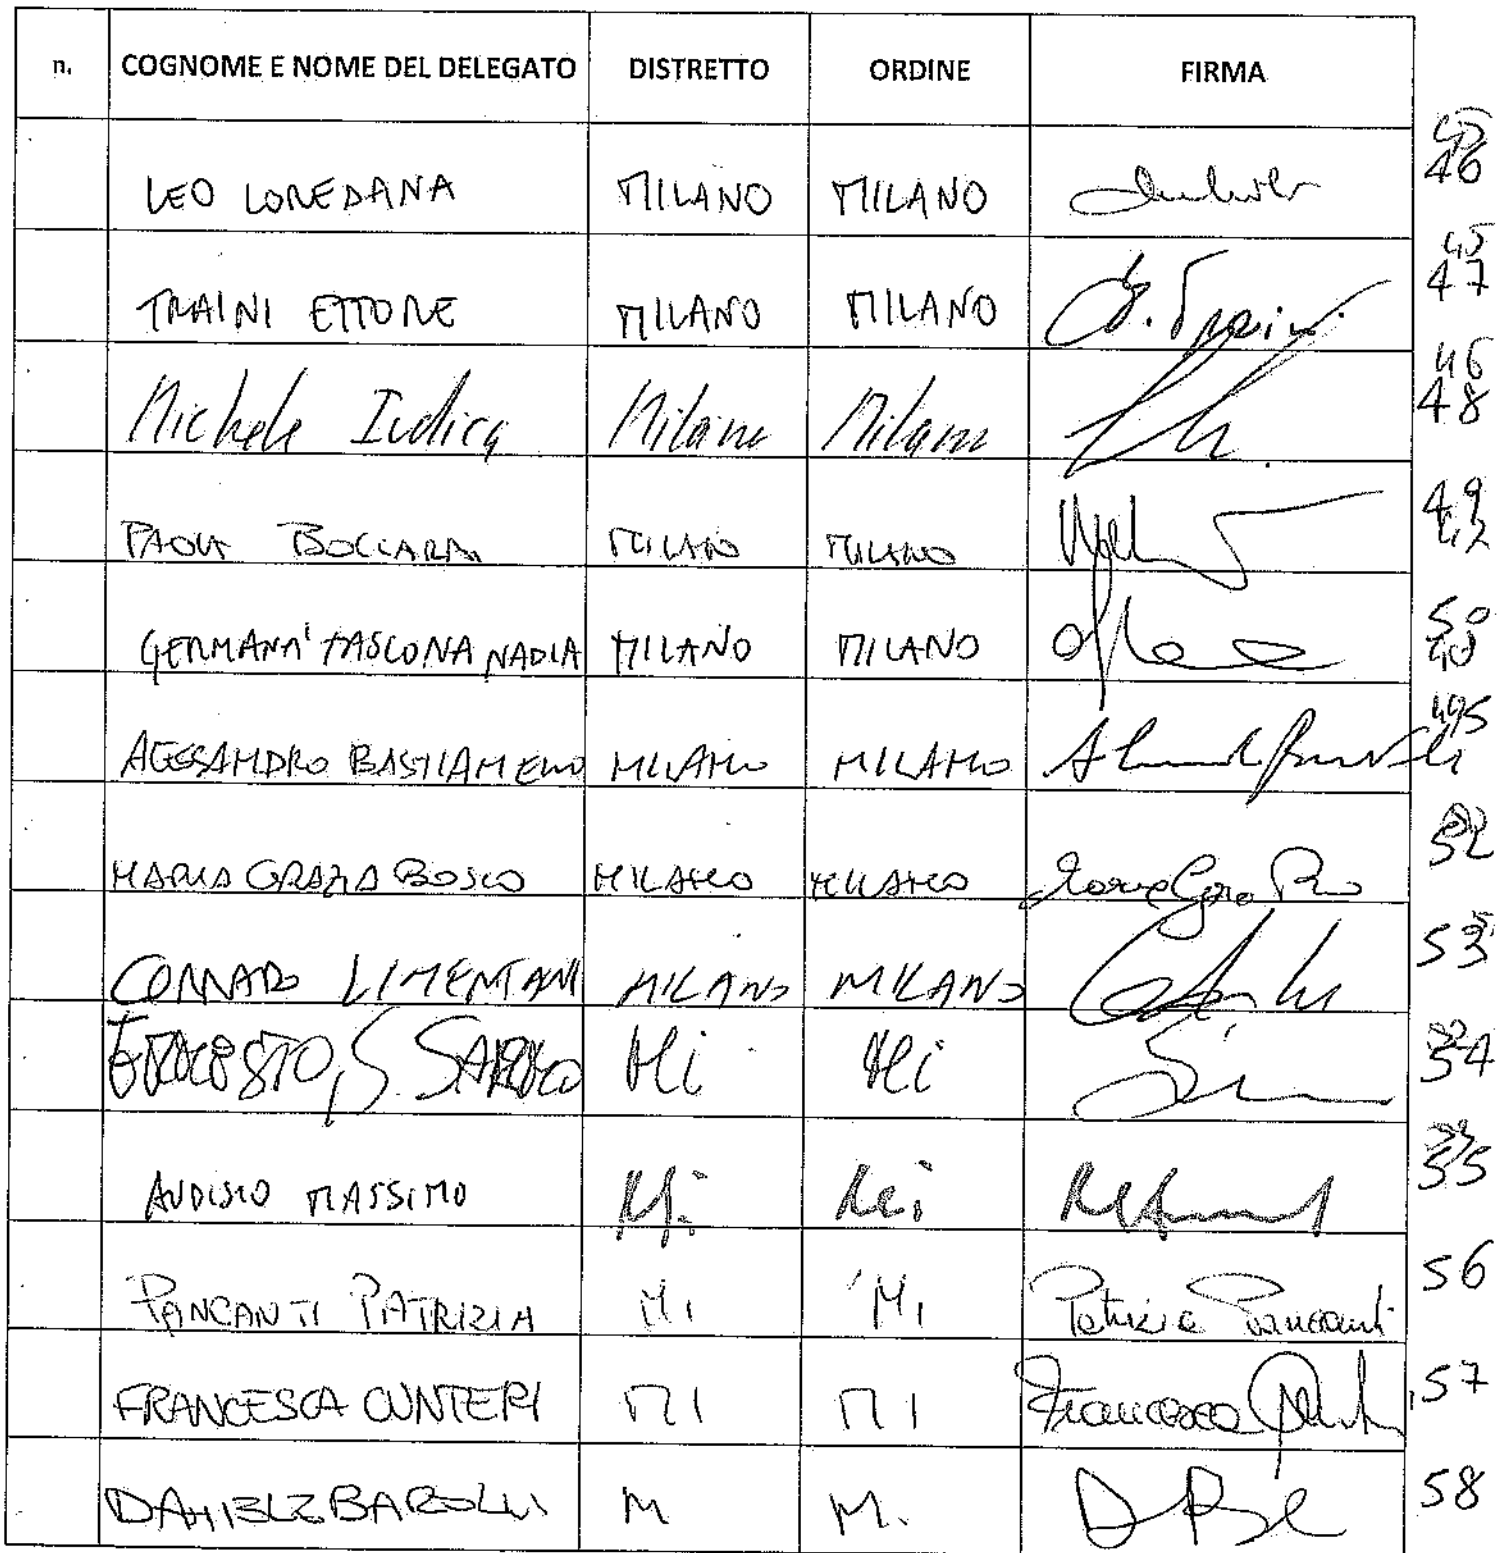 n. COGNOME E NOME DEL DELEGATO DISTRETTO ORDINE FIRMA
LEO LOREDANA MILANO MILANO 46
TRAINI ETTORE MILANO MILANO E. Traini 45 47
Michele Iudica Milano Milano 46 48
PAOLA BOCCARDI MILANO MILANO 49
GERMANA' TASCONA NADIA MILANO MILANO 50
ALESSANDRO BASTIANELLO MILANO MILANO
MARIA GRAZIA BOSCO MILANO MILANO Maria Grazia Bosco 52
CORRADO LIMENTANI MILANO MILANO 53
Mi Mi 54
AUDISIO MASSIMO Mi Mi 55
PANCANTI PATRIZIA MI MI Patrizia Pancanti 56
FRANCESCA CUNTERI MI MI Francesca 57
DANIELE BAROLLI M M. 58